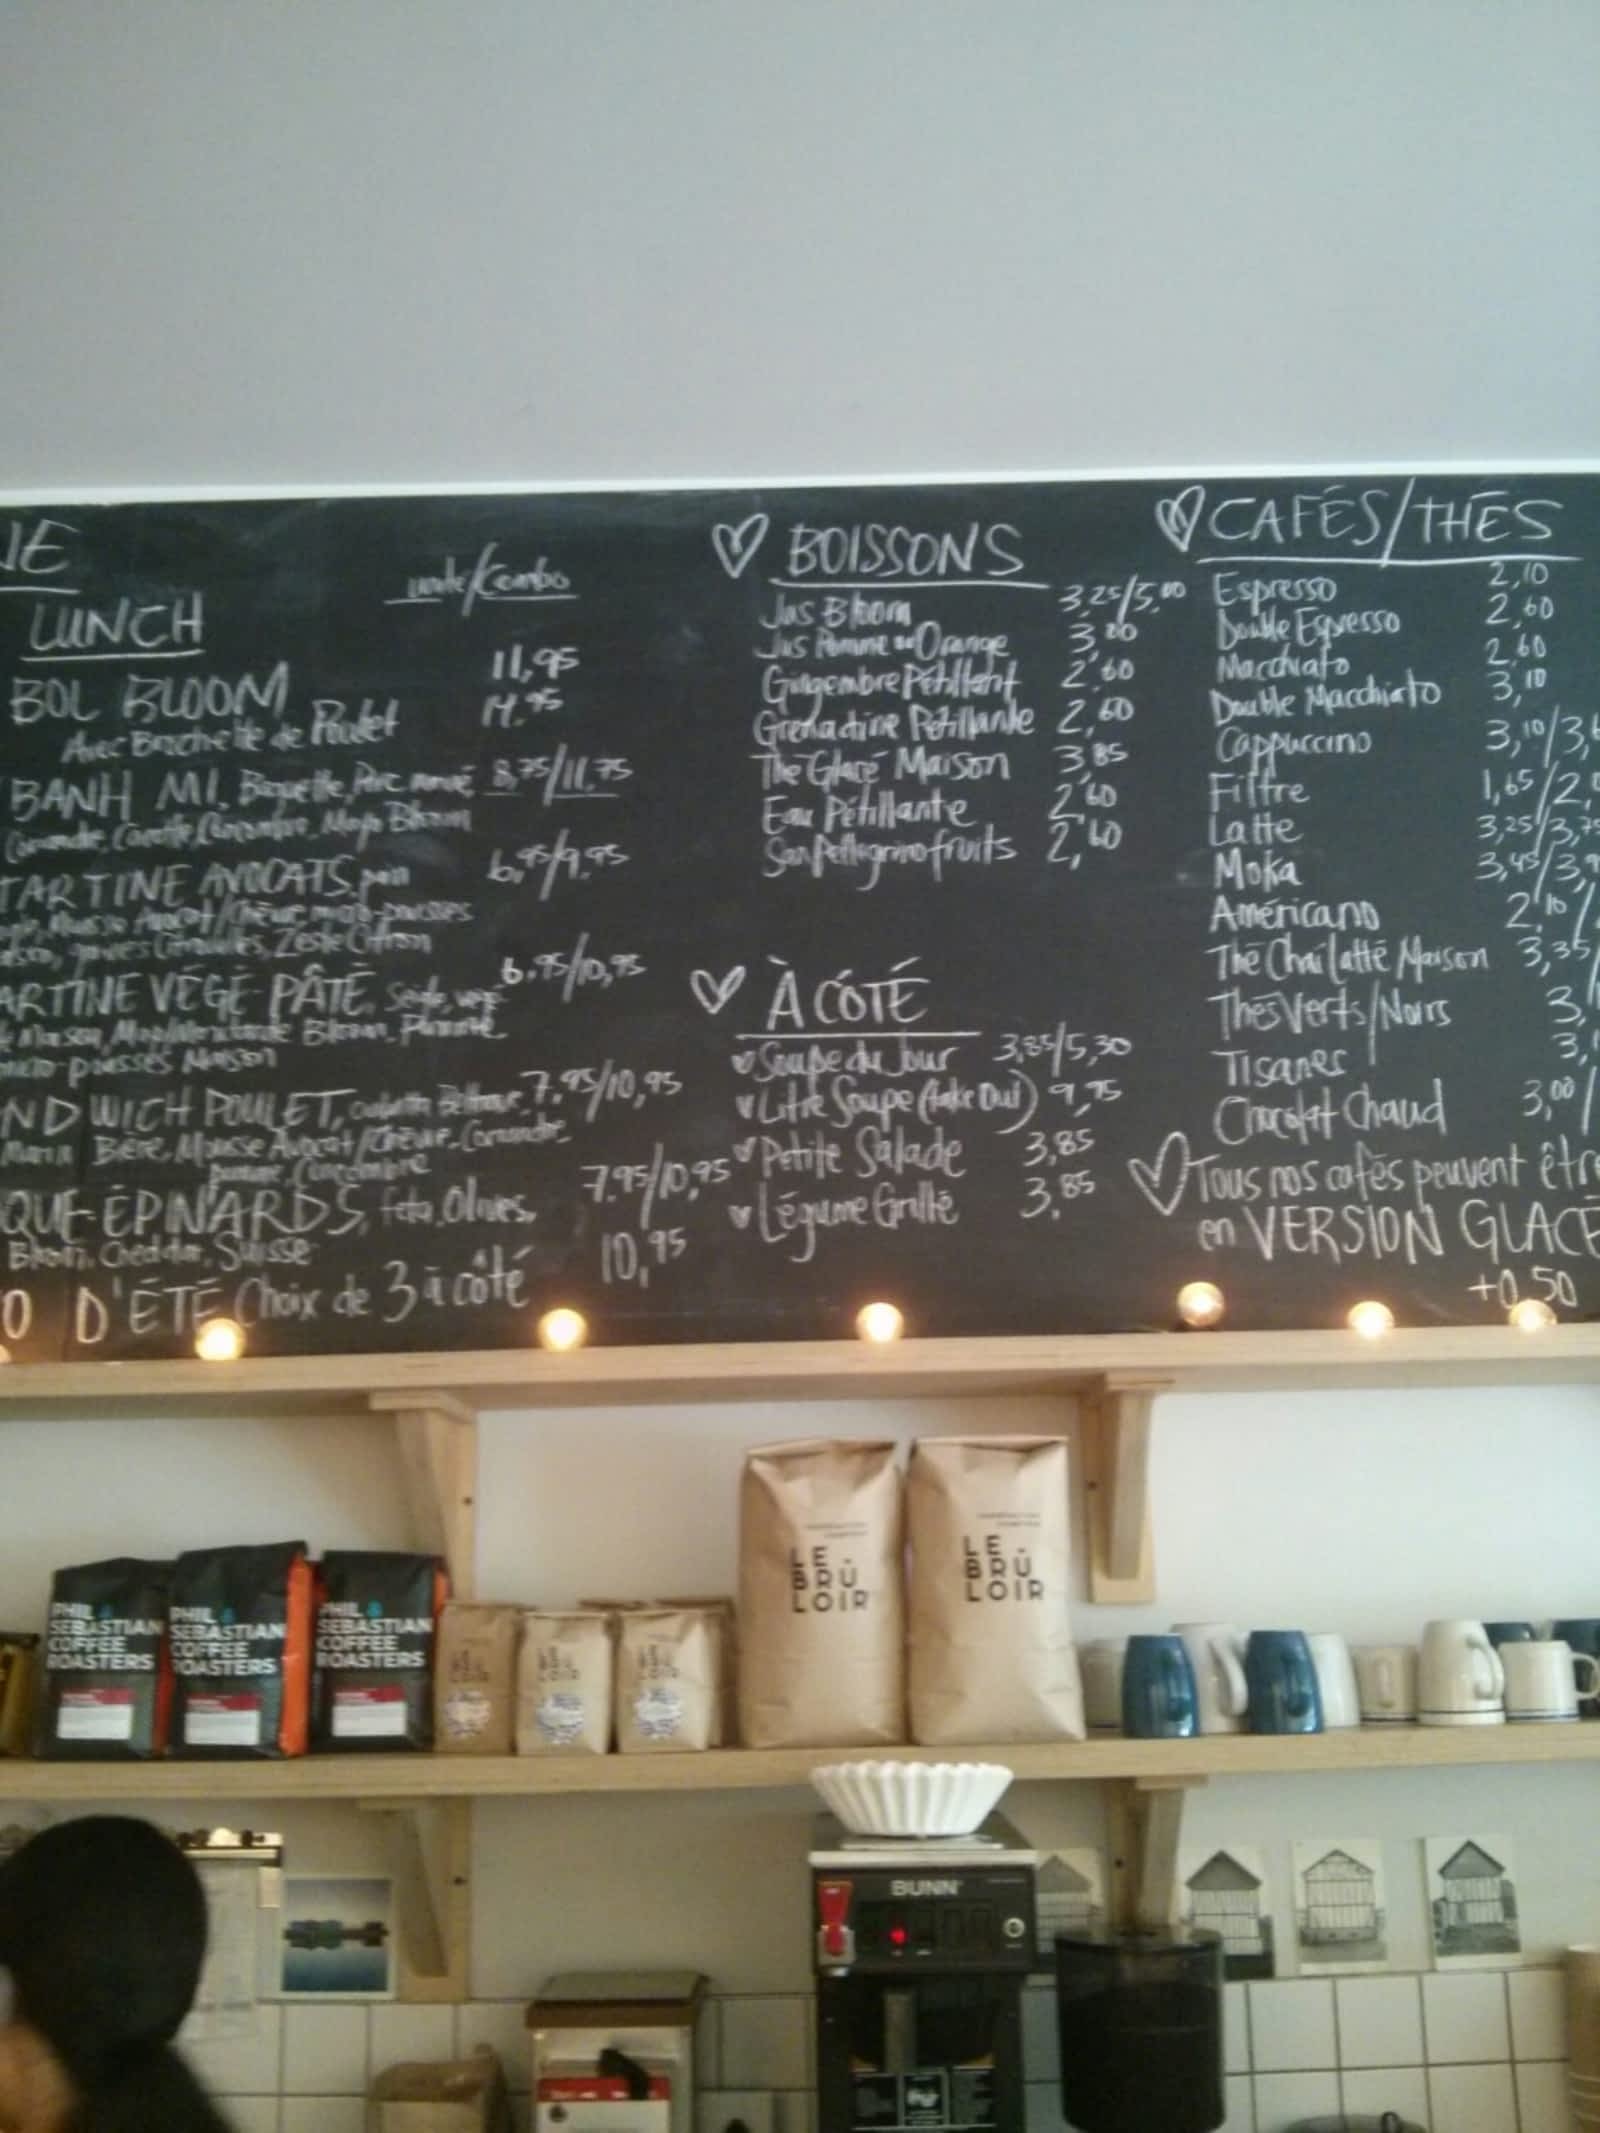 LUNCH
unité/Combo
BOL BLOOM 11,95
Avec Brochette de Poulet 14.95
BANH MI, Baguette, Porc 8,75/11,75
Coriandre, Carotte, Concombre, Mayo Bloom
TARTINE AVOCATS, pain 6,95/9,95
Mousse Avocat/Chèvre, micro-pousses
Zeste Citron
ARTINE VÉGÉ PÂTÉ, Seigle, végé 6.95/10,95
Maison, Bloom, Pomme
micro-pousses Maison
ND WICH POULET, 7.95/10,95
Bière, Mousse Avocat/Chèvre, Coriandre
pomme, Concombre
QUE ÉPINARDS, feta, Olives, 7.95/10,95
Cheddar, Suisse
O D'ÉTÉ Choix de 3 à côté 10,95
BOISSONS
Jus Bloom 3,25/5,00
Jus Pomme ou Orange 3,00
Gingembre Pétillant 2,60
Grenadine Pétillante 2,60
Thé Glacé Maison 3,85
Eau Pétillante 2,60
San Pellegrino fruits 2,60
À CÓTÉ
Soupe du Jour 3,85/5,30
Litre Soupe (take Out) 9,75
Petite Salade 3,85
Légume Grillé 3,85
CAFÉS/THÉS
Espresso 2,10
Double Espresso 2,60
Macchiato 2,60
Double Macchiato 3,10
Cappuccino 3,10/3,6
Filtre 1,65/2,0
Latte 3,25/3,75
Moka 3,45/3,9
Américano 2,10/
Thé Chaï Latté Maison 3,35/
Thés Verts/Noirs 3,
Tisanes 3,
Chocolat Chaud 3,00/
Tous nos cafés peuvent être
en VERSION GLACÉ
+0,50
PHIL & SEBASTIAN COFFEE ROASTERS
PHIL & SEBASTIAN COFFEE ROASTERS
PHIL & SEBASTIAN COFFEE ROASTERS
LE BRÛLOIR
LE BRÛLOIR
BUNN